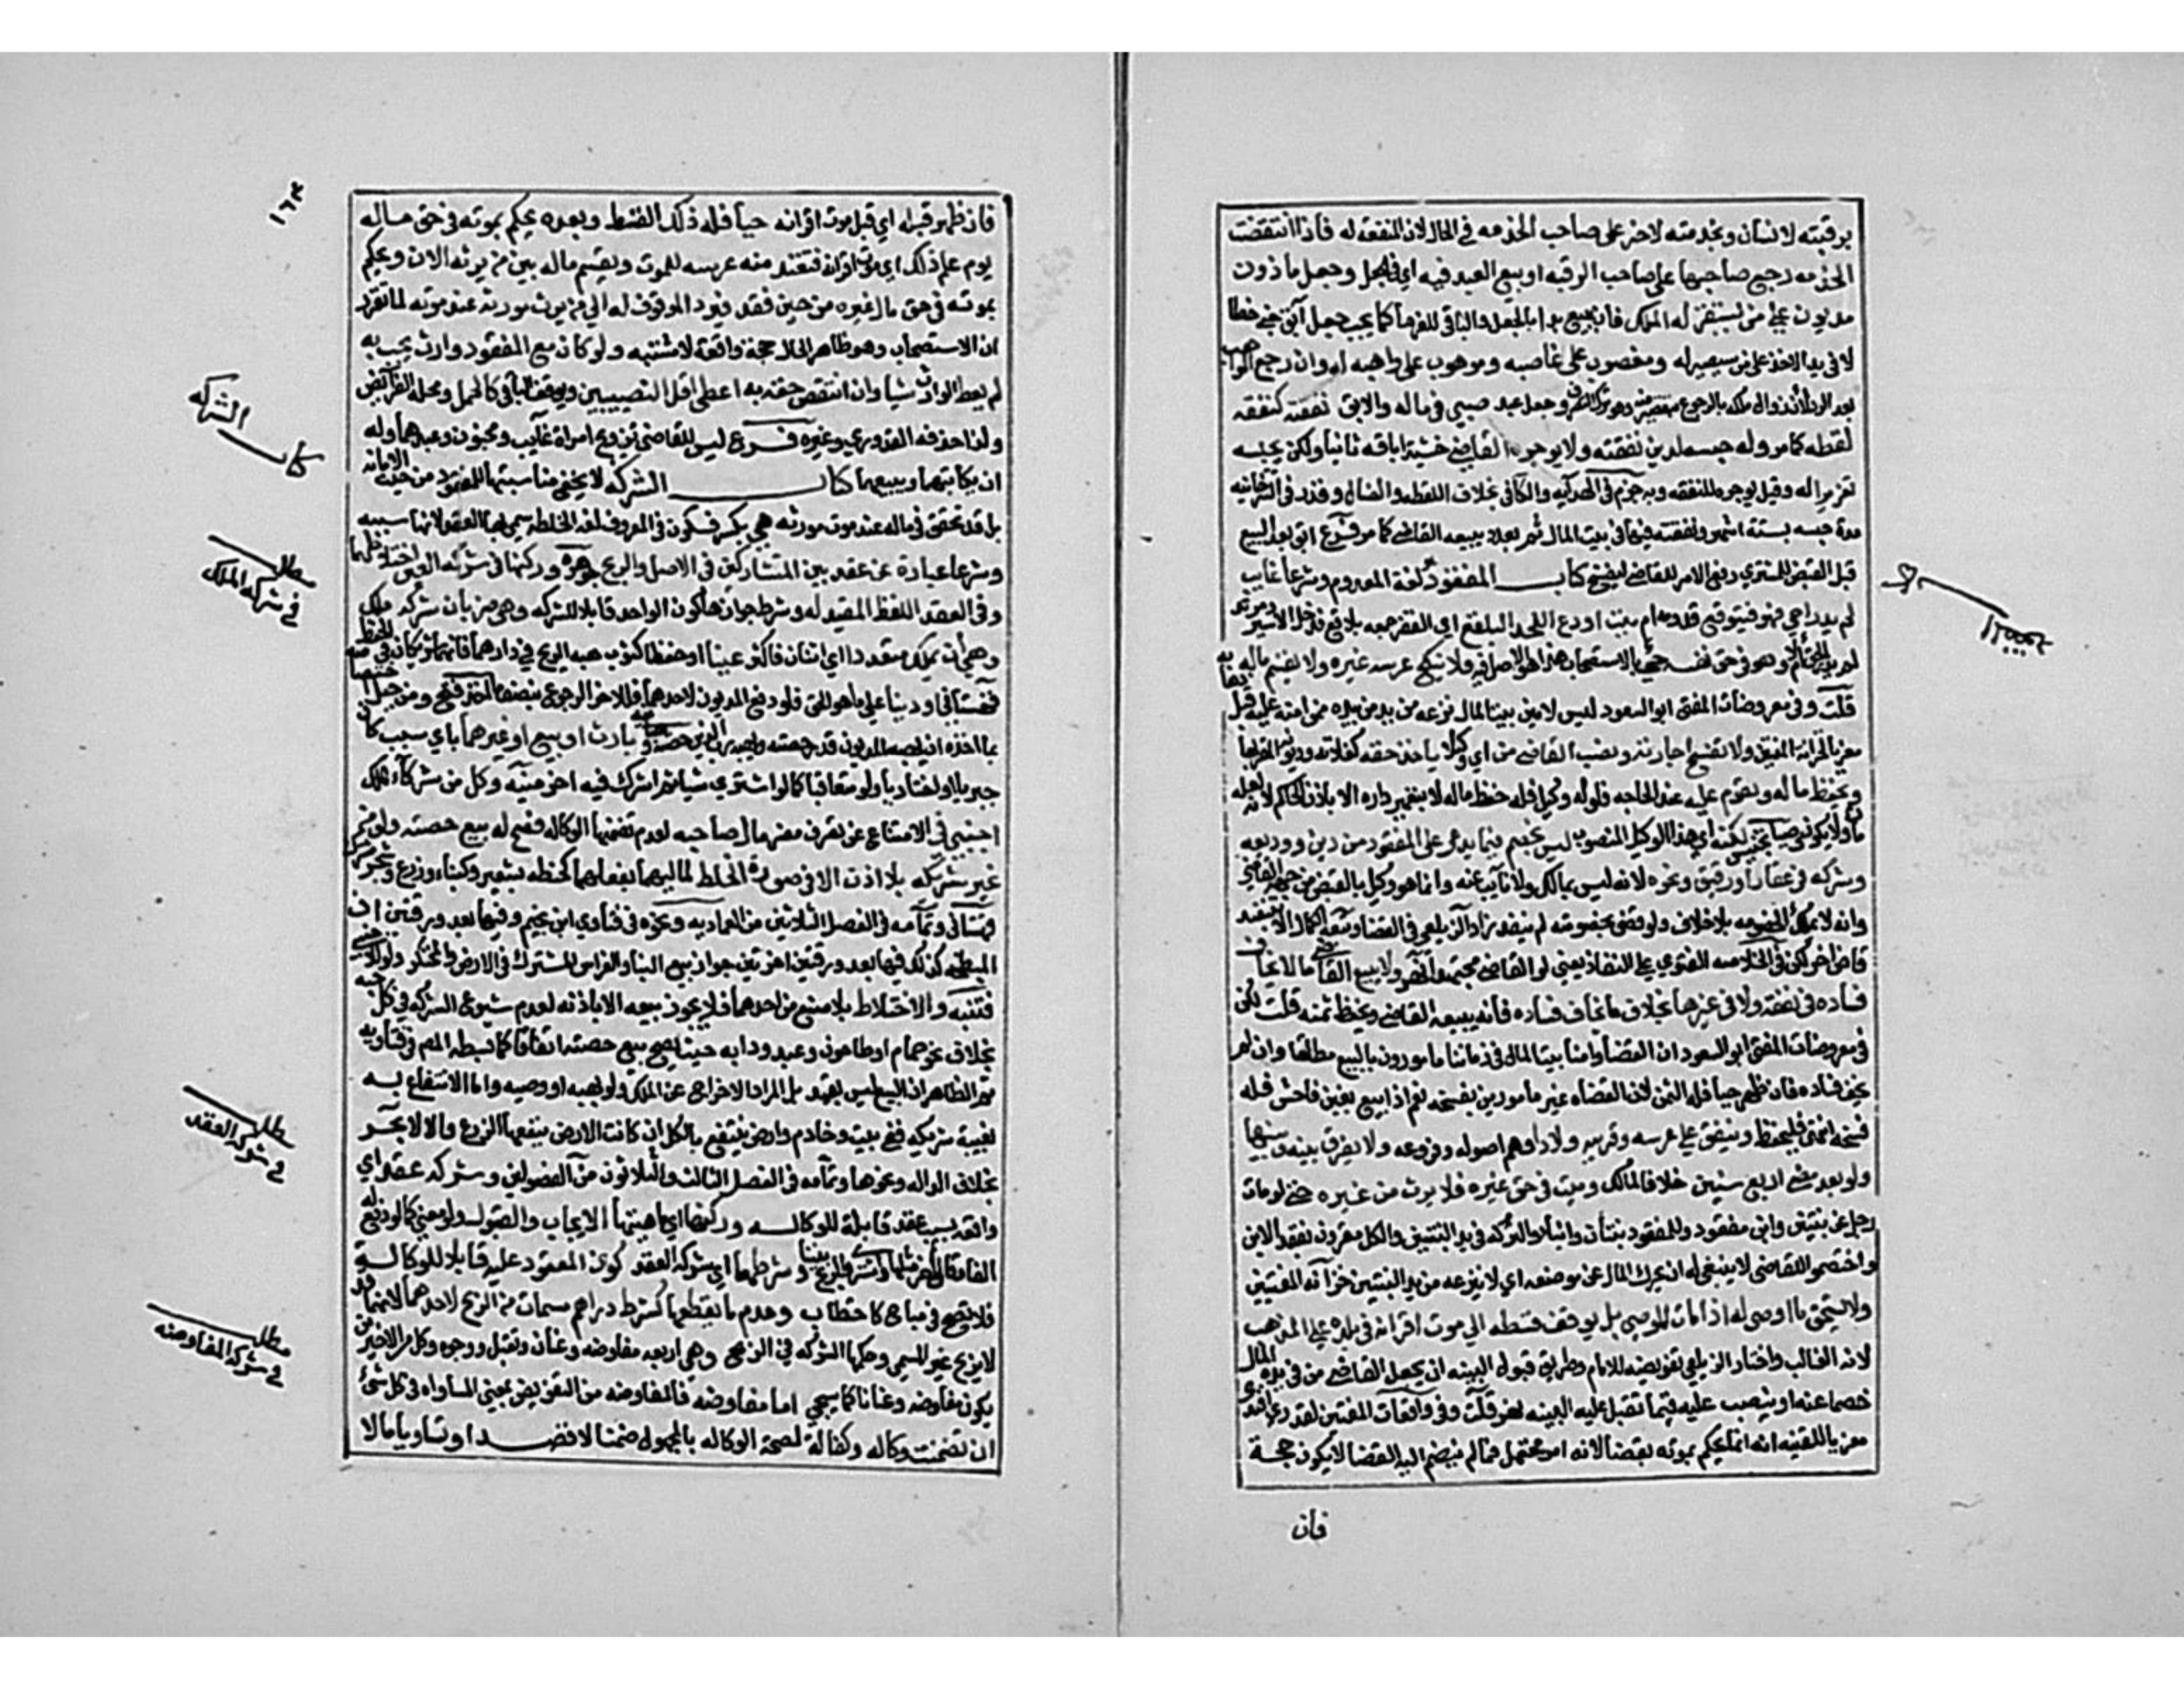 برقبته لانسان وبخدمته لاخر على صاحب الخدمه في الحال لان المنفعه له فاذا انتقضت
الخدمه رجع صاحبها على صاحب الرقبه او بيع العبد فيه اي في الجعل وجعل ماذون
مديون على من يستقر له الملك فان بيع بدا بالجعل والباقي للغرما كما يجب جعل آبق جني خطا
لا في يد الاخذ على من سيصير له ومغصوب على غاصبه وموهوب على واهبه له وان رجع الواهب
وجعل عبد صبي في ماله والابق نفقته كنفقه
لقطه كما مر وله حبسه لدين نفقته ولا يوجره القاضي خشية اباقه ثانيا ولكن يحبسه
تعزيرا له وقيل يوجره للنفقه وبه جزم في الهدايه والكافي بخلاف اللقطه والضال وقدر في التترخانيه
مدة حبسه بستة اشهر ونفقته فيها في بيت المال ثم بعدها يبيعه القاضي كما مر فرع ابق بعد البيع
قبل القبض للمشتري رفع الامر للقاضي ليفسخ كتاب المفقود لغة المعدوم وشرعا غايب
لم يدر احي هو فيتوقع قدومه ام ميت اودع اللحد البلقع اي القفر جمعه بلاقع فدخل الاسير
وهو في حق نفسه حي بالاستصحاب هذا هو الاصل فيه فلا ينكح عرسه غيره ولا يقسم ماله
قلت وفي معروضات المفتي ابو السعود ليس لامين بيت المال نزعه من يد من بيده ممن امنه عليه قبل
ولا تفسخ اجارته ونصب القاضي من اي وكيلا ياخذ حقه كغلاته وديونه المقر بها
ويحفظ ماله ويقوم عليه عند الحاجه فلو له وكيل فله حفظ ماله لا تعمير داره الا باذن الحاكم لانه لعله
لكنه اي هذا الوكيل المنصوب ليس بخصم فيما يدعى على المفقود من دين ووديعه
وشركه في عقار او رقيق ونحوه لانه ليس بمالك ولا نايب عنه وانما هو وكيل بالقبض من جهة القاضي
وانه لا يملك الخصومه بلا خلاف ولو قضى بخصومته لم ينفذ زاد الزيلعي في القضا
قاض اخر لكن في الخلاصه الفتوي على النفاذ يعني لو القاضي مجتهدا نهر ولا يبيع القاضي ما لا يخاف
فساده في نفقه ولا في غيرها بخلاف ما يخاف فساده فانه يبيعه القاضي ويحفظ ثمنه قلت لكن
في معروضات المفتي ابو السعود ان القضاة وامنا بيت المال في زماننا مامورون بالبيع مطلقا وان لم
يخف فساده فان ظهر حيا فله الثمن لان القضاه غير مامورين بفسخه نعم اذا بيع بغبن فاحش فله
فسخه انتهى فليحفظ وينفق على عرسه وقريبه ولادا وهم اصوله وفروعه ولا يفرق بينه وبينها
ولو بعد مضي اربع سنين خلافا لمالك وميت في حق غيره فلا يرث من غيره حتى لو مات
رجل عن بنتين وابن مفقود وللمفقود بنتان وابنا والتركه في يد البنتين والكل مقرون بفقد الابن
واختصموا للقاضي لا ينبغي له ان يحرك المال عن موضعه اي لا ينزعه من يد البنتين خزانه المفتيين
ولا يستحق ما اوصي له اذا مات الموصي بل يوقف قسطه الى موت اقرانه في بلده على المذهب
لانه الغالب واختار الزيلعي تفويضه للامام وطريق قبول البينه ان يجعل القاضي من في يده المال
خصما عنه او ينصب عليه قيما تقبل عليه البينه نهر قلت وفي واقعات المفتين لقدري افندي
معزيا للقنيه انه انما يحكم بموته بقضا لانه امر محتمل فما لم ينضم اليه القضا لا يكون حجة
فان
١٦٣
فان ظهر قبله اي قبل موت اقرانه حيا فله ذلك القسط وبعده يحكم بموته في حق ماله
يوم علم ذلك اي موت اقرانه فتعتد منه عرسه للموت ويقسم ماله بين من يرثه الان ويحكم
بموته في حق مال غيره من حين فقد فيرد الموقوف له الي من يرث مورثه عند موته لما تقرر
ان الاستصحاب وهو ظاهر الحال حجة دافعة لا مثبته ولو كان مع المفقود وارث يحجب به
لم يعط الوارث شيا وان انتقص حقه به اعطي اقل النصيبين ويوقف الباقي كالحمل ومحله الفرائض
ولذا حذفه القدوري وغيره فرع ليس للقاضي تزويج امراة غايب ومجنون وعبدهما وله
ان يكاتبهما ويبيعهما كتاب الشركه لا يخفى مناسبتها للمفقود من حيث الامانه
بل قد تحقق في ماله عند موت مورثه هي بكسر فسكون في المعروف لغة الخلطه سمي بها العقد لانها سببه
وشرعا عبارة عن عقد بين المتشاركين في الاصل والربح جوهره وركنها في شركه العين اختلاطهما
وفي العقد اللفظ المفيد له وشرط جوازها كون الواحد قابلا للشركه وهي ضربان شركه ملك
وهي ان يملك متعدد اي اثنان فاكثر عينا او حفظا كثوب هبه الريح في دارهما فانهما شريكان في الحفظ
قهستاني او دينا على ما هو الحق فلو دفع المديون لاحدهما فللاخر الرجوع بنصف ما اخذ فتح
بارث او بيع او غيرهما باي سبب كان
جبريا او اختياريا ولو متعاقبا كما لو اشتري شيا ثم اشرك فيه اخر منيه وكل من شركاء الملك
اجنبي في الامتناع عن تصرف مضر مال صاحبه لعدم تضمنها الوكاله فصح له بيع حصته ولو من
غير شريكه بلا اذن الا في صورة الخلط لماليهما بفعلهما كحنطه بشعير وكبناء وزرع
قهستاني وتمامه في الفصل الثلاثين من العماديه ونحوه في فتاوي ابن نجيم وفيها بعد ورقتين ان
المبطخه كذلك وفيها بعد ورقتين اخرتين جواز بيع البنا والغراس المشترك في الارض المحتكره
فتنبه والاختلاط بلا صنع من احدهما فلا يجوز بيعه الا باذنه لعدم شيوع الشركه في كل حبه
بخلاف نحو حمام وطاحون وعبد ودابه حيث يصح بيع حصته اتفاقا كما بسطه المصنف في فتاويه
ثم الظاهر ان البيع ليس بقيد بل المراد الاخراج عن الملك ولو بهبه او وصيه واما الانتفاع به
لغيبة شريكه ففي بيت وخادم وارض ينتفع بالكل ان كانت الارض ينفعها الزرع والا لا بحر
بخلاف الدابه ونحوها وتمامه في الفصل الثالث والثلاثون من الفصولين وشركه عقد اي
واقعه بسبب عقد قابلة للوكاله وركنها اي ماهيتها الايجاب والقبول ولو معني كما لو دفع له
وشرطها اي شركه العقد كون المعقود عليه قابلا للوكالة
فلا تصح في مباح كاحتطاب وعدم ما يقطعها كشرط دراهم مسمات من الربح لاحدهما لانه قد
لا يربح غير المسمي وحكمها الشركه في الربح وهي اربعه مفاوضه وعنان وتقبل ووجوه وكل من الاخيرين
يكون مفاوضه وعنانا كما سيجي اما مفاوضه فالمفاوضه من التفويض بمعني المساواه في كل شئ
ان تضمنت وكاله وكفالة لصحة الوكاله بالمجهول ضمنا لا قصدا وتساويا مالا
كتاب الشركه
مطلب
في شركه الملك
مطلب
في شركه العقد
مطلب
في شركه المفاوضه